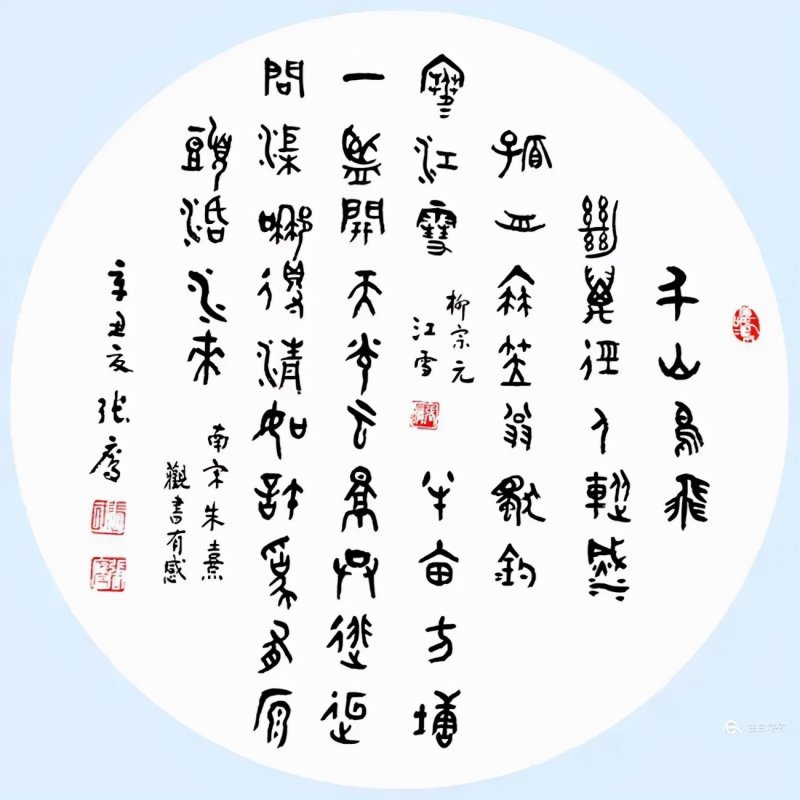 千山鳥飛
絕萬徑人蹤滅
孤舟蓑笠翁獨釣
寒江雪
柳宗元
江雪
半畝方塘
一監開天光云景共徘徊
問渠哪得清如許為有原
頭活水來
南宋朱熹
觀書有感
辛丑夏 张